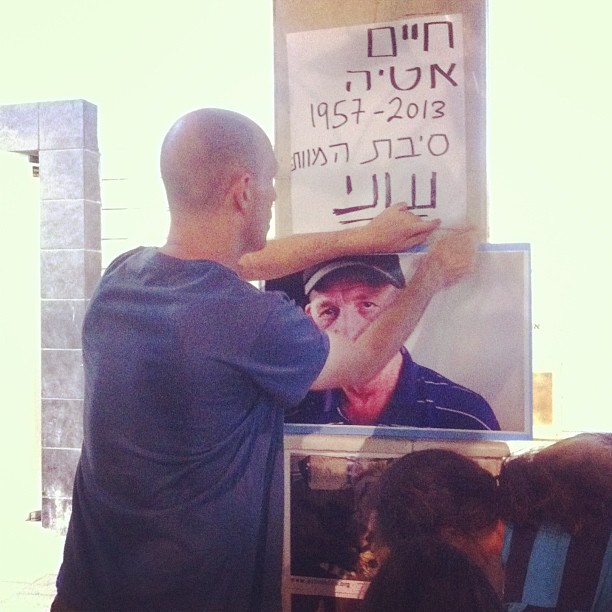 חיים
אטיה
1957-2013
סיבת המוות
עוני